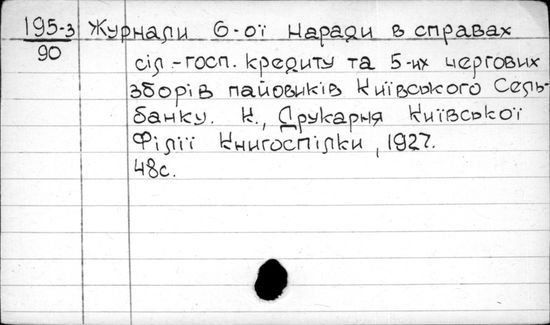 195-3 Журнали 6-ої Наради в справах
90
сіл.-госп. кредиту та 5-их чергових
зборів пайовиків Київського Сель-
банку. К., Друкарня Київської
Філії Книгоспілки, 1927.
48с.